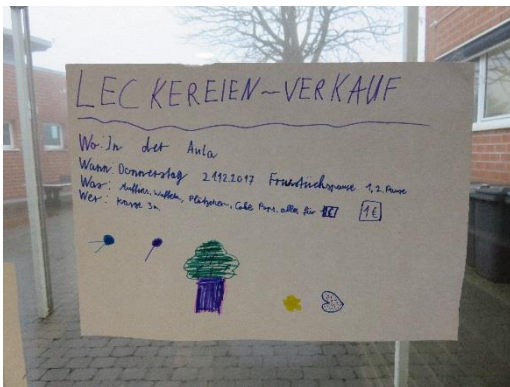 LECKEREIEN-VERKAUF
Wo: In der Aula
Wann: Donnerstag 21.12.2017 Fruestuckspause 1,2. Pause
Was: Muffins, Waffeln, Plätzchen, Cake Pops, alles für 1€
Wer: Klasse 3a